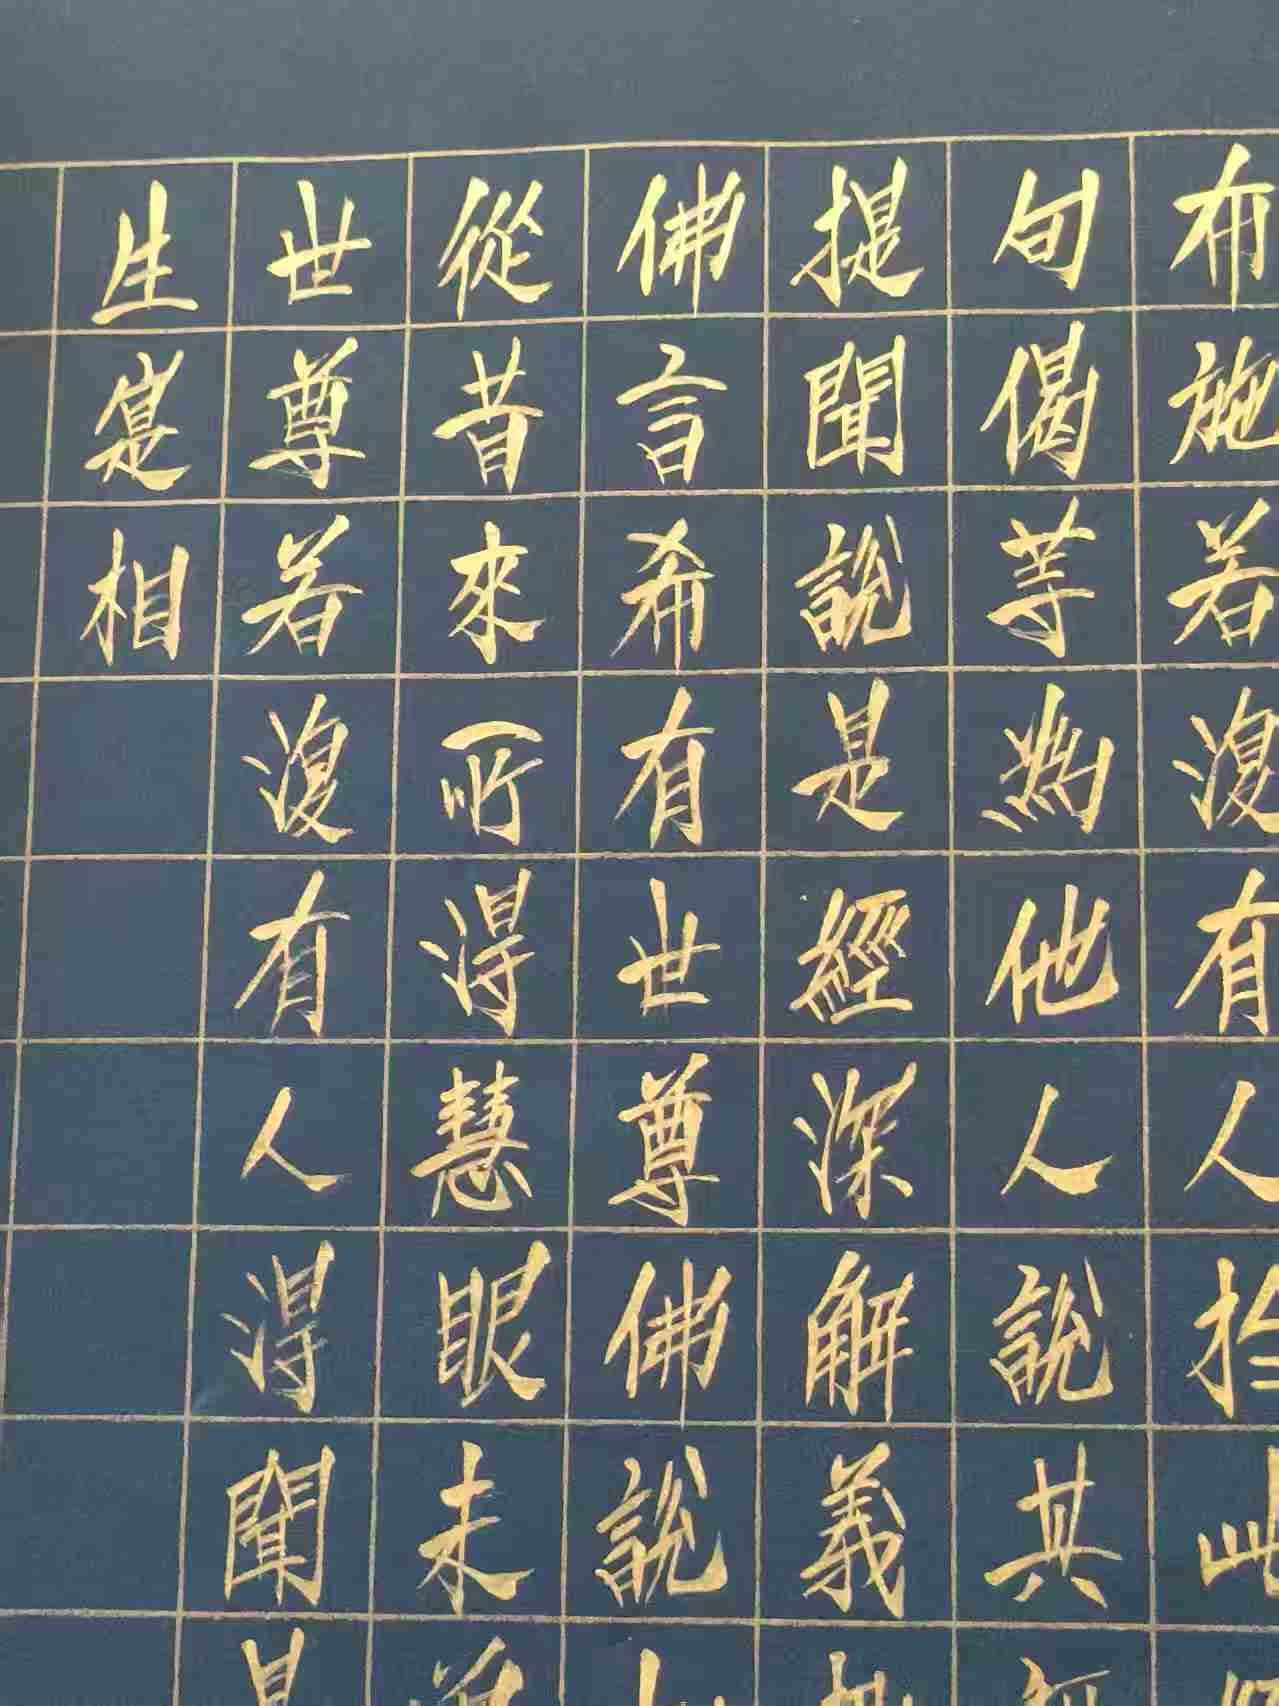 布施若復有人於此
句偈等為他人說其
提聞說是經深解義
佛言希有世尊佛說
從昔來所得慧眼未
世尊若復有人得聞
生寔相